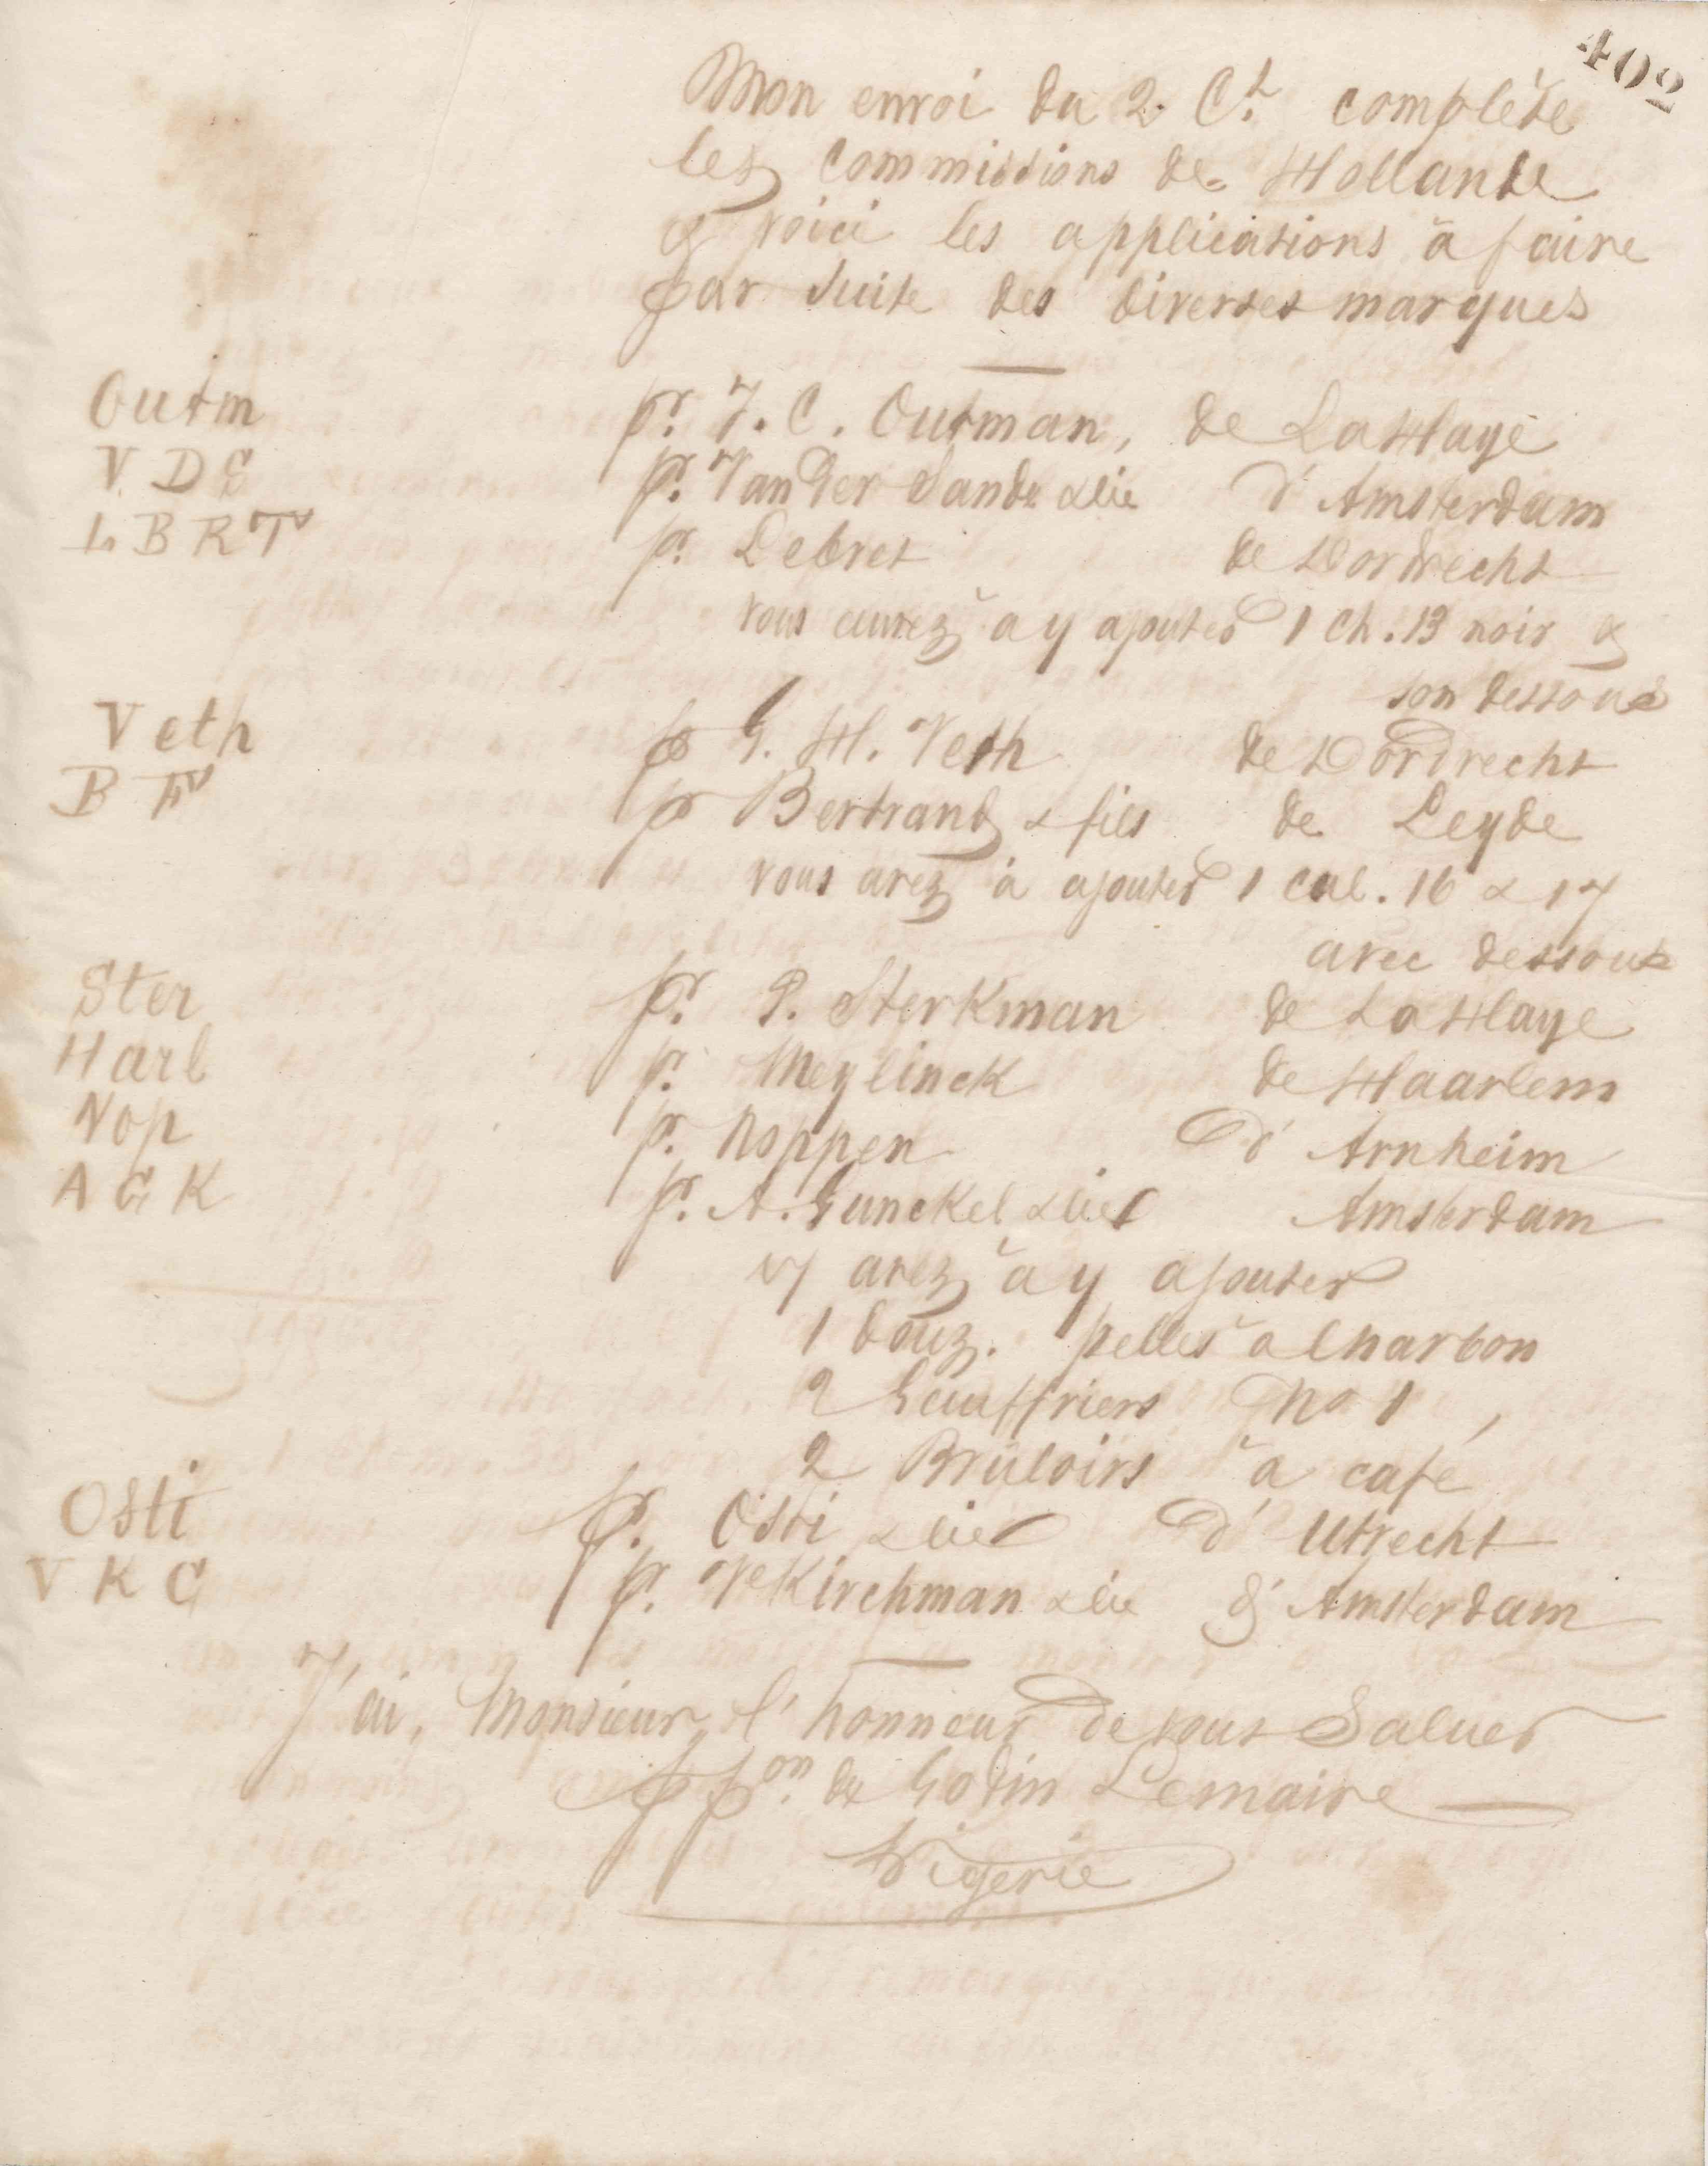 402
Mon envoi du 2 Ct complète
les commissions de Hollande
& voici les applications à faire
par suite des diverses marques
Outm pr. J. C. Outman, de La Haye
V. D S pr. Van Der Sande & Cie d'Amsterdam
L B R T pr. Lebret de Dordrecht
vous aurez à y ajouter 1 ch. 13 noir &
son dessous
Veth pr G. H. Veth de Dordrecht
B F pr Bertrand & fils de Leyde
vous avez à ajouter 1 cal. 16 & 17
avec dessous
Ster pr. P. Sterkman de La Haye
Harl pr. Meylinck de Haarlem
Nop pr. Noppen d'Arnheim
A G K pr. A. Gunckel & Cie Amsterdam
avez à y ajouter
1 douz. pelles à charbon
2 Gauffriers No 1
2 Brûloirs à café
Osti pr. Osti & Cie d'Utrecht
V K C pr. Ve Kirchman & Cie d'Amsterdam
J'ai, Monsieur, l'honneur de vous Saluer
p pon. de Godin Lemaire